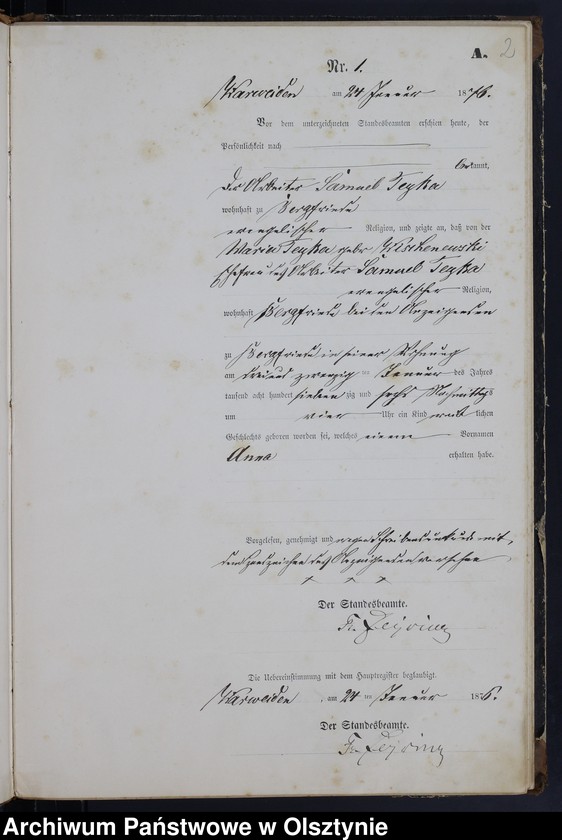 A. 2
Nr. 1.
Warweiden am 24 Januar 1876.
Vor dem unterzeichneten Standesbeamten erschien heute, der
Persönlichkeit nach
bekannt,
der Arbeiter Samuel Teyka
wohnhaft zu Bergfriede
evangelischer Religion, und zeigte an, daß von der
Maria Teyka gebr
Ehefrau des Arbeiter Samuel Teyka
evangelischer Religion,
wohnhaft Bergfriede bei den Anzeigenden
zu Bergfriede in seiner Wohnung
am drei und zwanzig ten Januar des Jahres
tausend acht hundert sieben zig und sechs Nachmittags
um vier Uhr ein Kind weib lichen
Geschlechts geboren worden sei, welches einen Vornamen
Anna erhalten habe.
Vorgelesen, genehmigt und wegen Schreibensunkunde mit
dem Handzeichen des Anzeigenden versehen
x x x
Der Standesbeamte.
Die Uebereinstimmung mit dem Hauptregister beglaubigt.
Warweiden am 24 ten Januar 1876.
Der Standesbeamte.
Archiwum Państwowe w Olsztynie